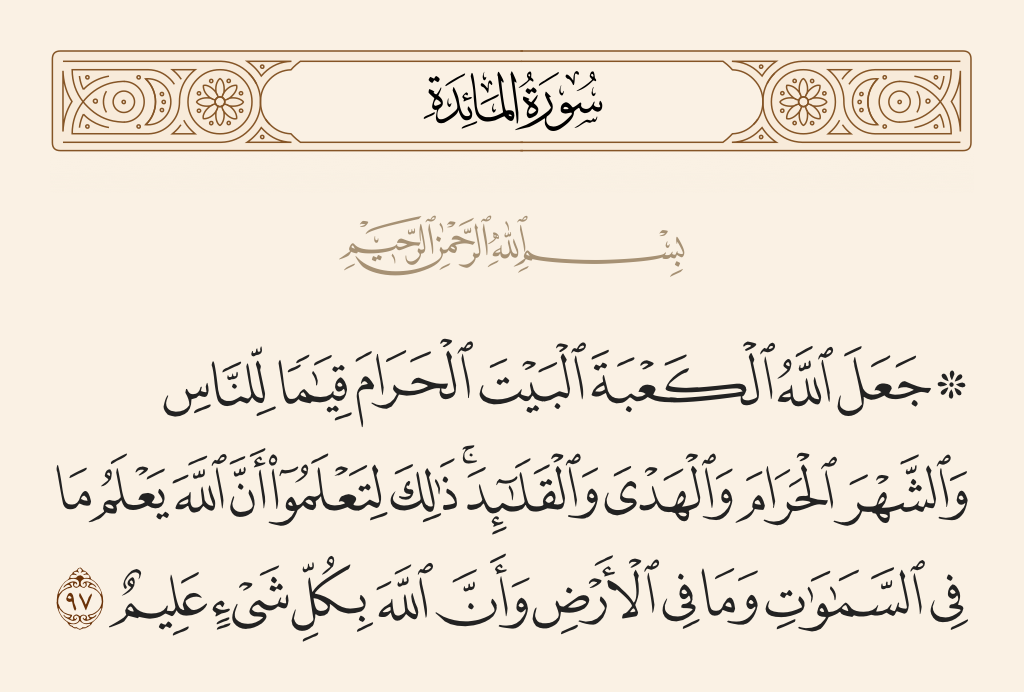 سُورَةُ المَائِدَةِ
بِسْمِ ٱللَّهِ ٱلرَّحْمَٰنِ ٱلرَّحِيمِ
۞ جَعَلَ ٱللَّهُ ٱلْكَعْبَةَ ٱلْبَيْتَ ٱلْحَرَامَ قِيَٰمًا لِّلنَّاسِ
وَٱلشَّهْرَ ٱلْحَرَامَ وَٱلْهَدْىَ وَٱلْقَلَٰٓئِدَ ۚ ذَٰلِكَ لِتَعْلَمُوٓا۟ أَنَّ ٱللَّهَ يَعْلَمُ مَا
فِى ٱلسَّمَٰوَٰتِ وَمَا فِى ٱلْأَرْضِ وَأَنَّ ٱللَّهَ بِكُلِّ شَىْءٍ عَلِيمٌ ٩٧